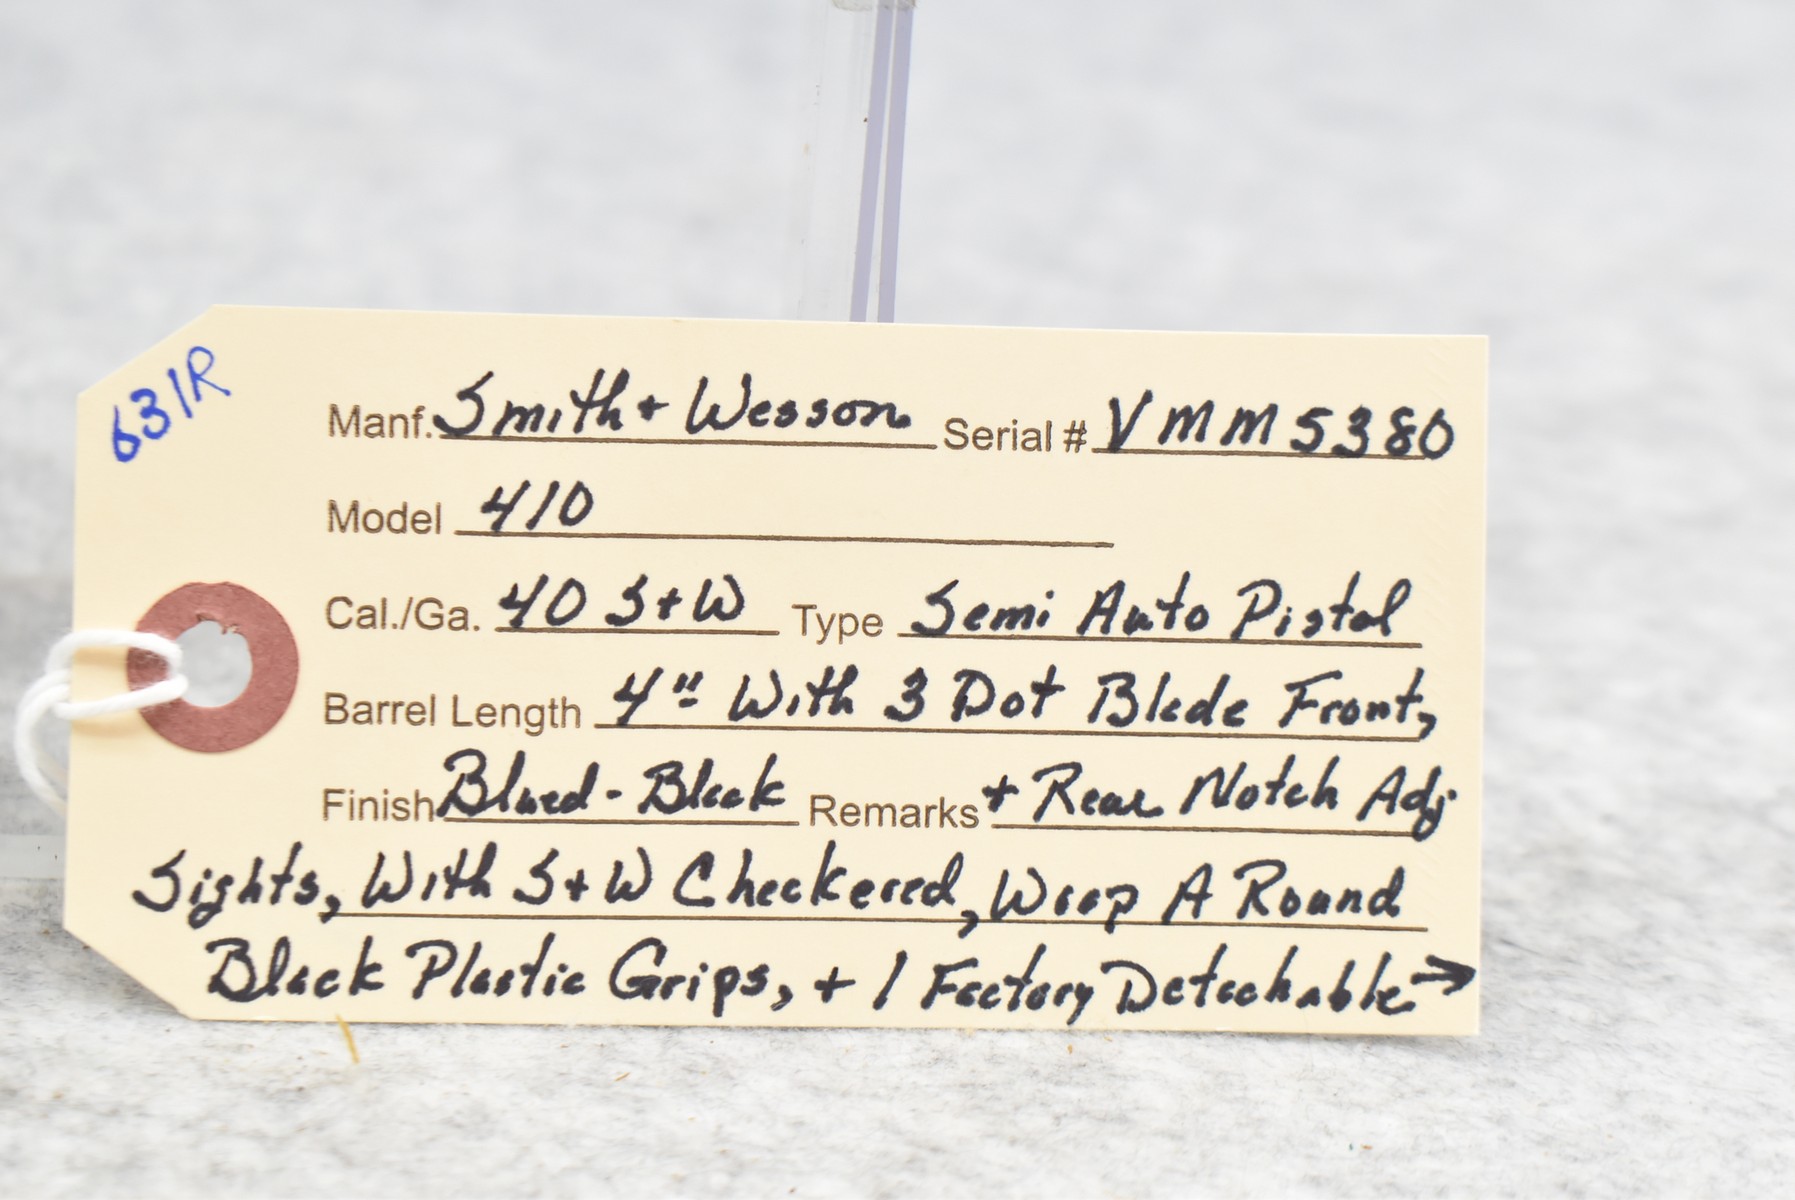 631R
Manf. Smith + Wesson Serial # VMM5380
Model 410
Cal./Ga. 40 S+W Type Semi Auto Pistol
Barrel Length 4" With 3 Dot Blade Front,
Finish Blued - Black Remarks + Rear Notch Adj
Sights, With S+W Checkered, Wrap A Round
Black Plastic Grips, + 1 Factory Detachable →